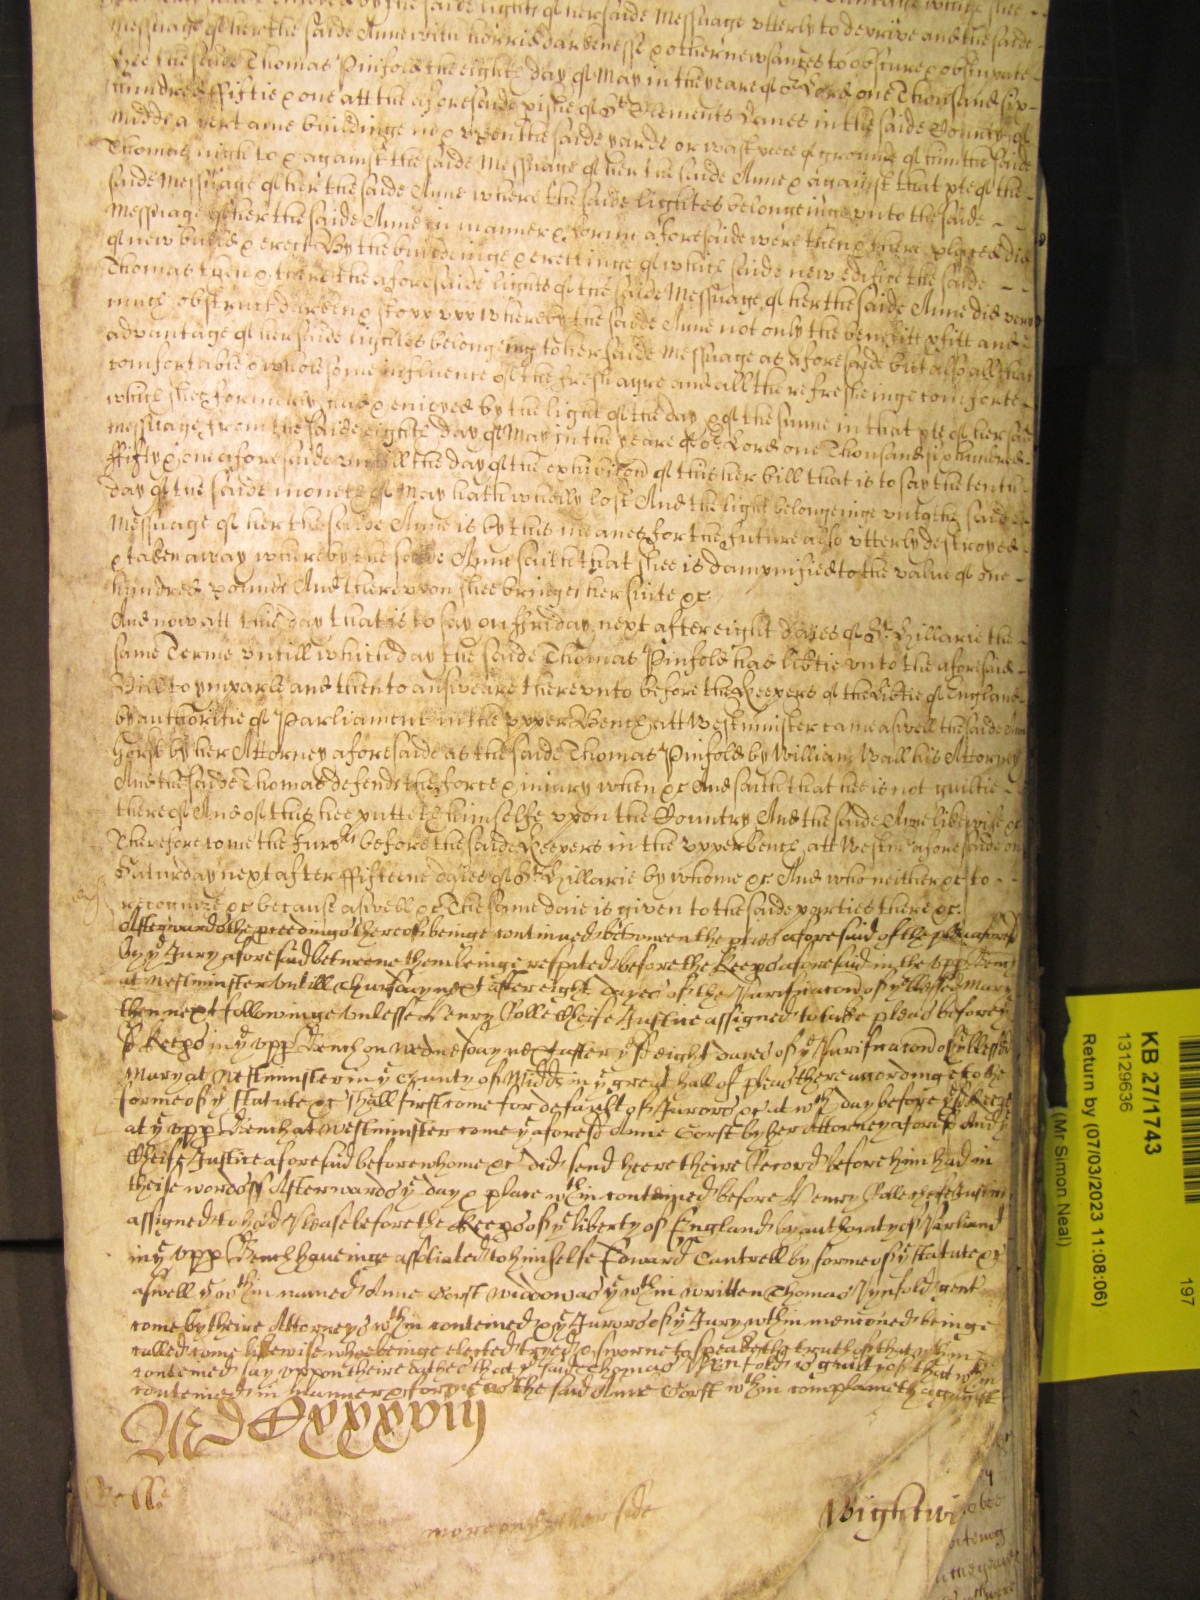 messuage of her the saide Anne with horrid darkenesse & other newsances to obscure & obstupate
hee the saide Thomas Pinfold the eight day of May in the yeare of or Lord one Thousand six
hundred ffiftie & one att the aforesaide pishe of St Clements Danes in the saide County of
Midds a certaine buildinge newe upon the saide yarde or wast peece of grounde of him the saide
Thomas nigh to & against the saide Messuage of her the saide Anne & against that pte of the
saide Messuage of her the saide Anne where the saide lightes belongeinge unto the saide
Messuage of her the saide Anne in manner & forme aforesaide were then & there placed did
of new build & erect By the buildeinge & erectinge of which saide new edifice the saide
Thomas then & there the aforesaide lights of the saide Messuage of her the saide Anne did very
much obstruct darken & stopp upp whereby the saide Anne not only the benefitt pfitt and
advantage of her saide lightes belongeing to her saide Messuage as aforesaide but also all that
comfortable & wholesome influence of the fresh ayre and all the refresheinge comforte
which shee formerly had & enioyed by the light of the day & of the sunne in that pte of her said
messuage from the saide eighth day of May in the yeare of or Lord one Thousand six hundred
ffifty & one aforesaide untill the day of the exhibicon of this her bill that is to say the tenth
day of the saide moneth of May hath wholly lost And the light belongeinge unto the saide
Messuage of her the saide Anne is by this meanes for the future also utterly destroyed
& taken away whereby the saide Anne saith that shee is dampnified to the value of one
hundred pounds And thereupon shee bringes her suite &c
And now att this day that is to say on ffriday next after eight dayes of St Hillarie the
same Terme untill which day the saide Thomas Pinfold had libtie unto the aforesaid
Bill to imparle and then to answeare thereunto before the Keepers of the Libtie of England
by authoritie of Parliament in the upper Bench att Westminster came aswell the saide Anne
Gorst by her Attorney aforesaide as the saide Thomas Pinfold by William Wall his Attorney
And the saide Thomas defends the force & iniury when &c And saith that hee is not guiltie
thereof And of this hee putteth himselfe upon the Country And the saide Anne likewise &c
Therefore come the Jury before the saide Keepers in the upper bench att Westmr aforesaide on
Saturday next after ffifteene daies of St Hillarie by whome &c And who neither &c to
recognize &c because aswell &c The same daie is given to the saide parties there &c
Afterwards the proceedings thereof beinge continued betweene the pties aforesaid of the plea aforesd
by ye Jury aforesaid betweene them beinge respited before the Keeps aforesaid in the upp Bench
at Westminster untill Thursday next after eight dayes of the Purificacon of ye blessed Mary
then next followinge unlesse Henry Rolle Cheife Justice assigned to take pleas before ye
sd Keeps in ye upp Bench on Wednesday next after ye sd eight dayes of ye Purificacon of ye blessed
Mary at Westminster in ye County of Midds in ye great hall of pleas there accordinge to the
forme of ye statute &c shall first come for default of Jurors &c at wch day before ye sd Keeps
at ye upp Bench at Westminster come ye aforesd Anne Gorst by her Attorney aforesd And ye
Cheife Justice aforesaid before whome &c did send heere theire Record before him had in
theise words ss Afterwards ye day & place wthin contained before Henry Rolle Cheife Justice
assigned to hold Pleas before the Keeps of ye liberty of England by authority of Parliamt
in ye upp Bench haveinge assotiated to himselfe Edward Cantrell by forme of ye statute &c
aswell ye wthin named Anne Gorst widdow as ye wthin written Thomas Pynfold gent
come by theire Attorneys wthin conteined & ye Jurors of ye Jury wthin mencioned beinge
called come likewise who beinge elected tryed & sworne to speake the truth of that wthin
conteined say uppon theire oathes that ye said Thomas Pynfold is guilty of that wthin
conteined in manner & forme as the said Anne Gorst wthin complaineth against
MDCXXXXVIIJ
Rolle
more on the other side
Wightwi
KB 27/1743
13129636
Return by (07/03/2023 11:08:06)
(Mr Simon Neal)
197